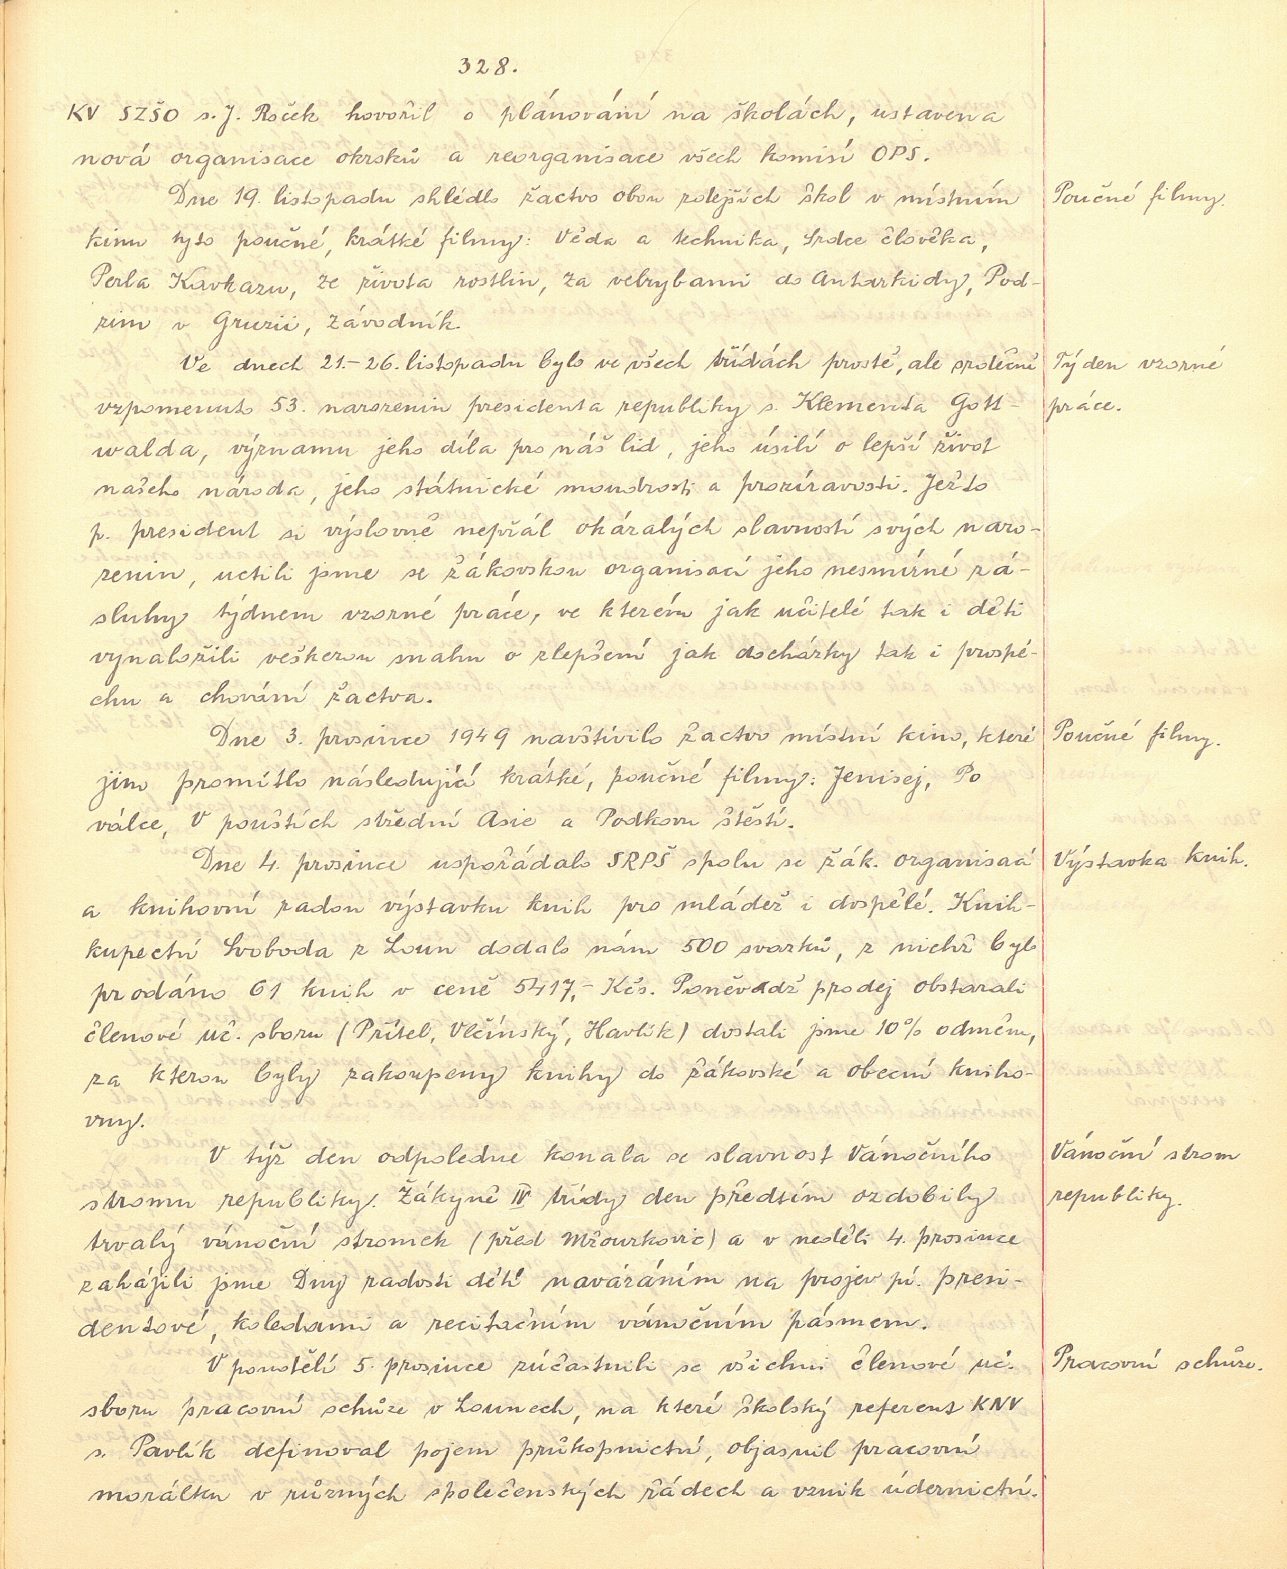 328.
KV SZŠO s. J. Roček hovořil o plánování na školách, ustavena
nová organisace okrsků a reorganisace všech komisí OPS.
Dne 19. listopadu shlédlo žactvo obou zdejších škol v místním
kinu tyto poučné, krátké filmy: Věda a technika, Srdce člověka,
Perla Kavkazu, Ze života rostlin, Za velrybami do Antarktidy, Pod-
zim v Gruzii, Závodník.
Poučné filmy.
Ve dnech 21.-26. listopadu bylo ve všech třídách prostě, ale srdečně
vzpomenuto 53. narozenin presidenta republiky s. Klementa Gott-
walda, významu jeho díla pro náš lid, jeho úsilí o lepší život
našeho národa, jeho státnické moudrosti a prozíravosti. Ježto
p. president si výslovně nepřál okázalých slavností svých naro-
zenin, uctili jsme se žákovskou organisací jeho nesmírné zá-
sluhy týdnem vzorné práce, ve kterém jak učitelé tak i děti
vynaložili veškerou snahu o zlepšení jak docházky tak i prospě-
chu a chování žactva.
Týden vzorné
práce.
Dne 3. prosince 1949 navštívilo žactvo místní kino, které
jim promítlo následující krátké, poučné filmy: Jenisej, Po
válce, V pouštích střední Asie a Podkova štěstí.
Poučné filmy.
Dne 4. prosince uspořádalo SRPŠ spolu se žák. organisací
a knihovní radou výstavku knih pro mládež i dospělé. Knih-
kupectví Svoboda z Loun dodalo nám 500 svazků, z nichž bylo
prodáno 61 knih v ceně 5417,- Kčs. Poněvadž prodej obstarali
členové uč. sboru (Přítel, Vlčínský, Havlík) dostali jsme 10% odměnu,
za kterou byly zakoupeny knihy do žákovské a obecní kniho-
vny.
Výstavka knih.
V týž den odpoledne konala se slavnost Vánočního
stromu republiky. Žákyně IV třídy den předtím ozdobily
trvalý vánoční stromek (před Mžourkovic) a v neděli 4. prosince
zahájili jsme Dny radosti dětí navázáním na projev pí. presi-
dentové, koledami a recitačním vánočním pásmem.
Vánoční strom
republiky.
V pondělí 5. prosince zúčastnili se všichni členové uč.
sboru pracovní schůze v Lounech, na které školský referent KNV
s. Pavlík definoval pojem průkopnictví, objasnil pracovní
morálku v různých společenských řádech a vznik údernictví.
Pracovní schůze.